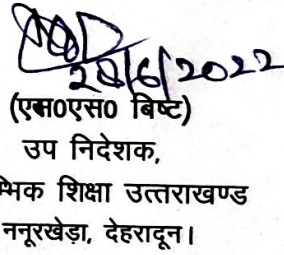 28/6/2022
(एस0एस0 बिष्ट)
उप निदेशक,
म्भिक शिक्षा उत्तराखण्ड
ननूरखेड़ा, देहरादून।